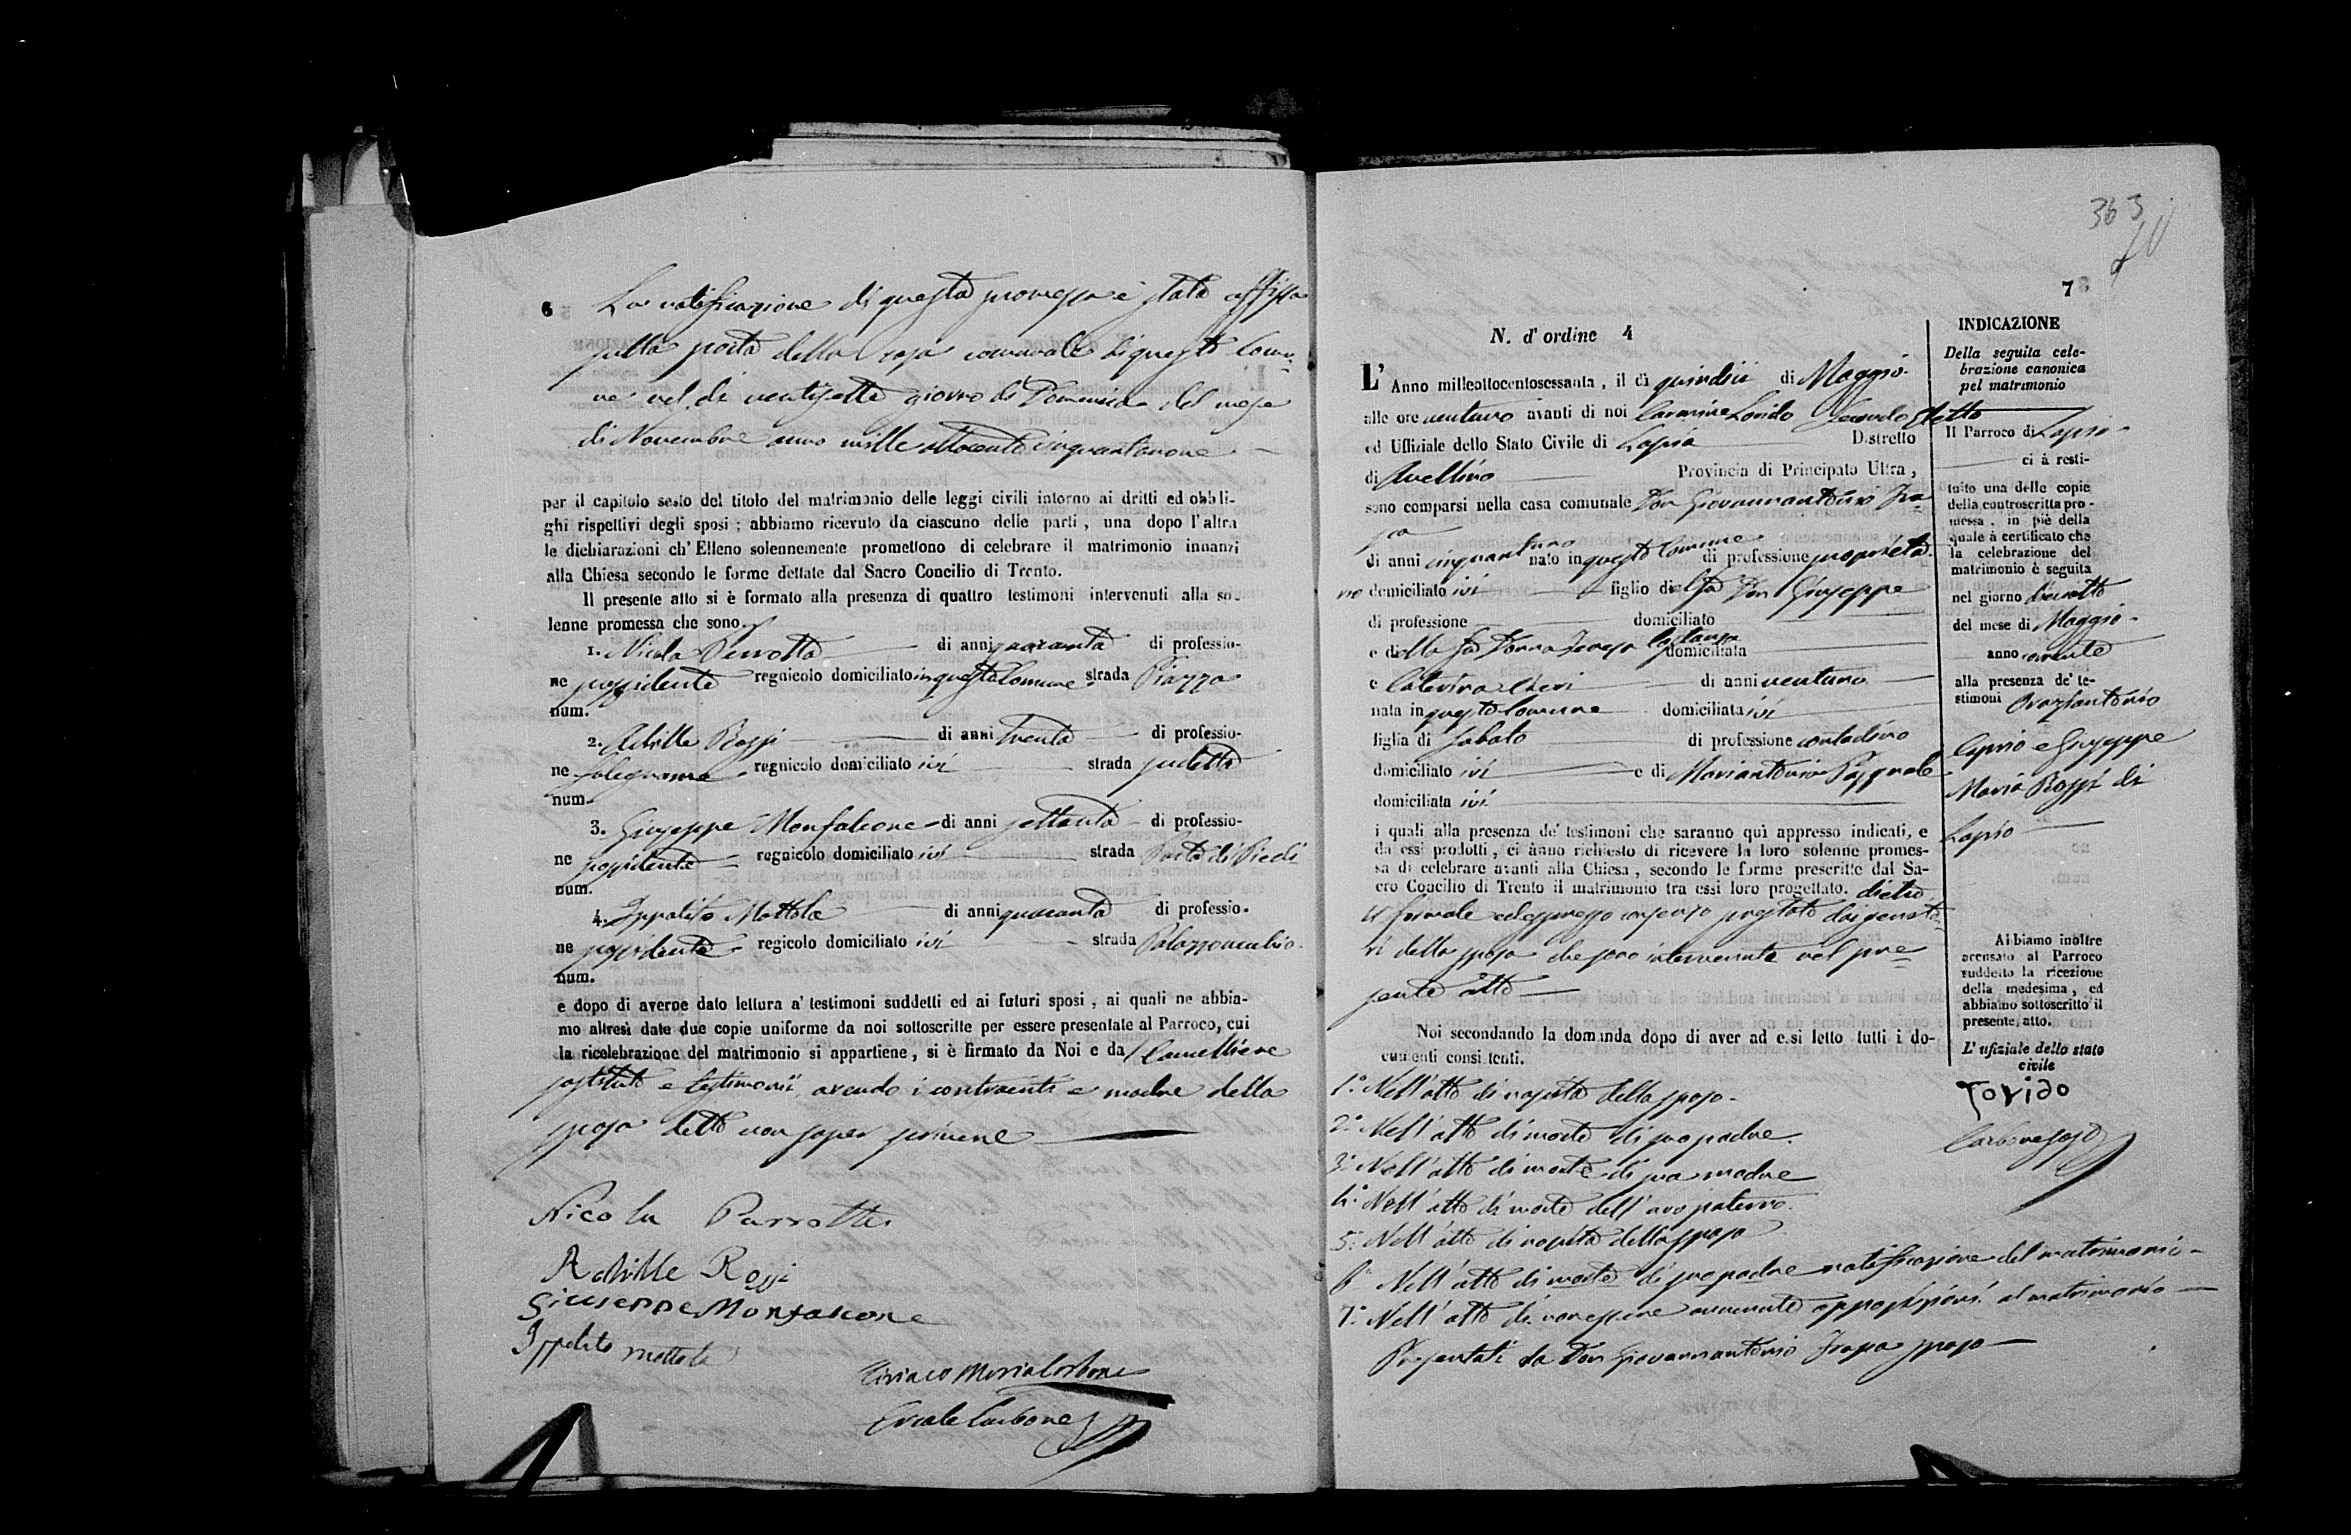 6
La notificazione di questa promessa è stata affissa
sulla porta della casa comunale di questo Comu=
ne nel dì ventisette giorno di Domenica del mese
di Novembre anno mille ottocento cinquantanove
per il capitolo sesto del titolo del matrimonio delle leggi civili intorno ai dritti ed obbli-
ghi rispettivi degli sposi ; abbiamo ricevuto da ciascuno delle parti , una dopo l'altra
le dichiarazioni ch' Elleno solennemente promettono di celebrare il matrimonio innanzi
alla Chiesa secondo le forme dettate dal Sacro Concilio di Trento.
Il presente atto si è formato alla presenza di quattro testimoni intervenuti alla so-
lenne promessa che sono.
1. Nicola Perrotta di anni quaranta di professio-
ne possidente regnicolo domiciliato in questo Comune strada Piazza
num.
2. Achille Rossi di anni trenta di professio-
ne falegname regnicolo domiciliato ivi strada
num.
3. Giuseppe Monfalcone di anni settanta di professio-
ne possidente regnicolo domiciliato ivi strada Porta di Piedi
num.
4. Ippolito Mottola di anni quaranta di professio-
ne possidente regicolo domiciliato ivi strada
num.
e dopo di averne dato lettura a' testimoni suddetti ed ai futuri sposi , ai quali ne abbia-
mo altresì date due copie uniforme da noi sottoscritte per essere presentate al Parroco, cui
la ricelebrazione del matrimonio si appartiene , si è firmato da Noi e da Cancelliere
sostituto e testimonii, avendo i contraenti e madre della
sposa detto non saper scrivere
Nicola Parrotta
Achille Rossi
Giuseppe Monfalcone
Ippolito Mottola
Ciriaco Maria Carbone
Carbone
363
7
N. d' ordine 4
L' Anno milleottocentosessanta , il dì quindici di Maggio
alle ore ventuno avanti di noi Carmine Lorido Secondo Eletto
ed Uffiziale dello Stato Civile di Lapio Distretto
di Avellino Provincia di Principato Ultra ,
sono comparsi nella casa comunale Don Giovannantonio
di anni cinquantuno nato in questo Comune di professione proprieta=
rio domiciliato ivi figlio del fu Don Giuseppe
di professione domiciliato
e della fu Donna Teresa domiciliata
e Caterina di anni ventuno
nata in questo Comune domiciliata ivi
figlia di Sabato di professione contadino
domiciliato ivi e di Mariantonia Pasquale
domiciliata ivi
i quali alla presenza de' testimoni che saranno qui appresso indicati, e
da essi prodotti , ci ànno richiesto di ricevere la loro solenne promes-
sa di celebrare avanti alla Chiesa , secondo le forme prescritte dal Sa-
cro Concilio di Trento il matrimonio tra essi loro progettato. dietro
il formale ed espresso consenso prestato dai genito=
ri della sposa che sono intervenuti nel pre=
sente atto
Noi secondando la domanda dopo di aver ad essi letto tutti i do-
cumenti consistenti.
1.° Nell'atto di nascita dello sposo
2.° Nell'atto di morte di suo padre
3.° Nell'atto di morte di sua madre
4.° Nell'atto di morte dell'avo paterno
5.° Nell'atto di nascita della sposa
6.° Nell'atto di morte di suo padre notificazione del matrimonio
7.° Nell'atto di non essere avvenute opposizioni al matrimonio
Presentati da Don Giovannantonio sposo
INDICAZIONE
Della seguita cele-
brazione canonica
pel matrimonio
Il Parroco di Lapio
ci à resti-
tuito una delle copie
della controscritta pro-
messa , in piè della
quale à certificato che
la celebrazione del
matrimonio è seguita
nel giorno diciotto
del mese di Maggio
anno corrente
alla presenza de' te-
stimoni Oraziantonio
Ciprio e Giuseppe
Maria Rossi di
Lapio
Abbiamo inoltre
accusato al Parroco
suddetto la ricezione
della medesima , ed
abbiamo sottoscritto il
presente atto.
L' ufiziale dello stato
civile
Lorido